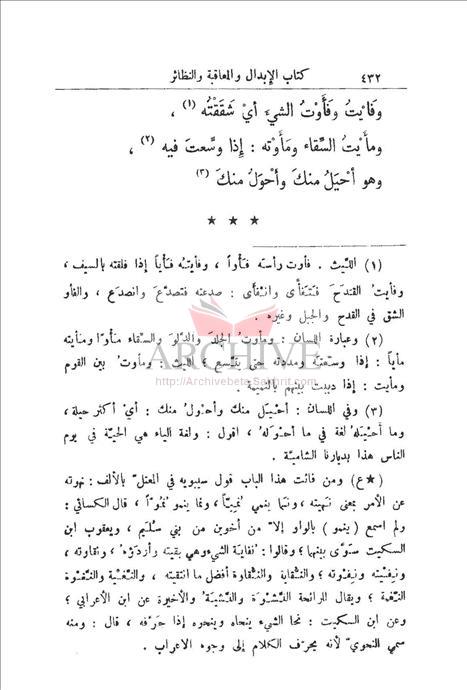 ٤٣٢ كتاب الإبدال والمعاقبة والنظائر
وَفَأيْتُ وَفَأَوْتُ الشيءَ أيْ شَقَقْتُه (١) ،
ومأَيْتُ السِّقاء ومَأَوْته : إذا وسَّعتَ فيه (٢) ،
وهو أحْيَلُ منكَ وأحْوَلُ منكَ (٣)
* * *
(١) الليث . فأوت رأسه فأواً ، وفأيته فأياً إذا فلقته بالسيف ،
وفأيت القدح فتفأى وانفأى : صدعته فتصدّع وانصدع ، والفأو
الشق في القدح والجبل وغيره .
(٢) وعبارة اللسان : ومأوت الجلد والدلو والسقاء مأوًا ومأيته
مأياً : إذا وسعته ومددته حتى يتسع ؛ الليث : ومأوت بين القوم
ومأيت : إذا دببت بينهم بالنميمة
ARCHIVE
http://Archivebeta.Sakhrit.com
(٣) وفي اللسان : أحيل منك وأحول منك : أيْ أكثر حيلة ،
وما أحيله لغة في ما أحوله ، اقول : ولغة الياء هي الحية في يوم
الناس هذا بديارنا الشامية .
(★ع) ومن فائت هذا الباب قول سيبويه في المعتل بالألف : نهوته
عن الأمر بمعنى نهيته ، ونما ينمي نميًا ، ونما ينمو نموًا ، قال الكسائي :
ولم اسمع (ينمو) بالواو إلا من أخوين من بني سليم ، ويعقوب ابن
السكيت سوّى بينها ؛ وقالوا : نفاية الشيء وهي بقيته وأردؤه ، ونفاوته ،
ونفيته ونفوته ؛ والنقاية والنقاوة أفضل ما انتقيته ، والنغية والنغوة
النغمة ؛ ويقال للرائحة النشوة والنشية والأخيرة عن ابن الأعرابي ؛
وعن ابن السكيت : نحا الشيء ينحاه وينحوه إذا حرّفه ، قال : ومنه
سمي النحويّ لأنه يحرّف الكلام إلى وجوه الاعراب .